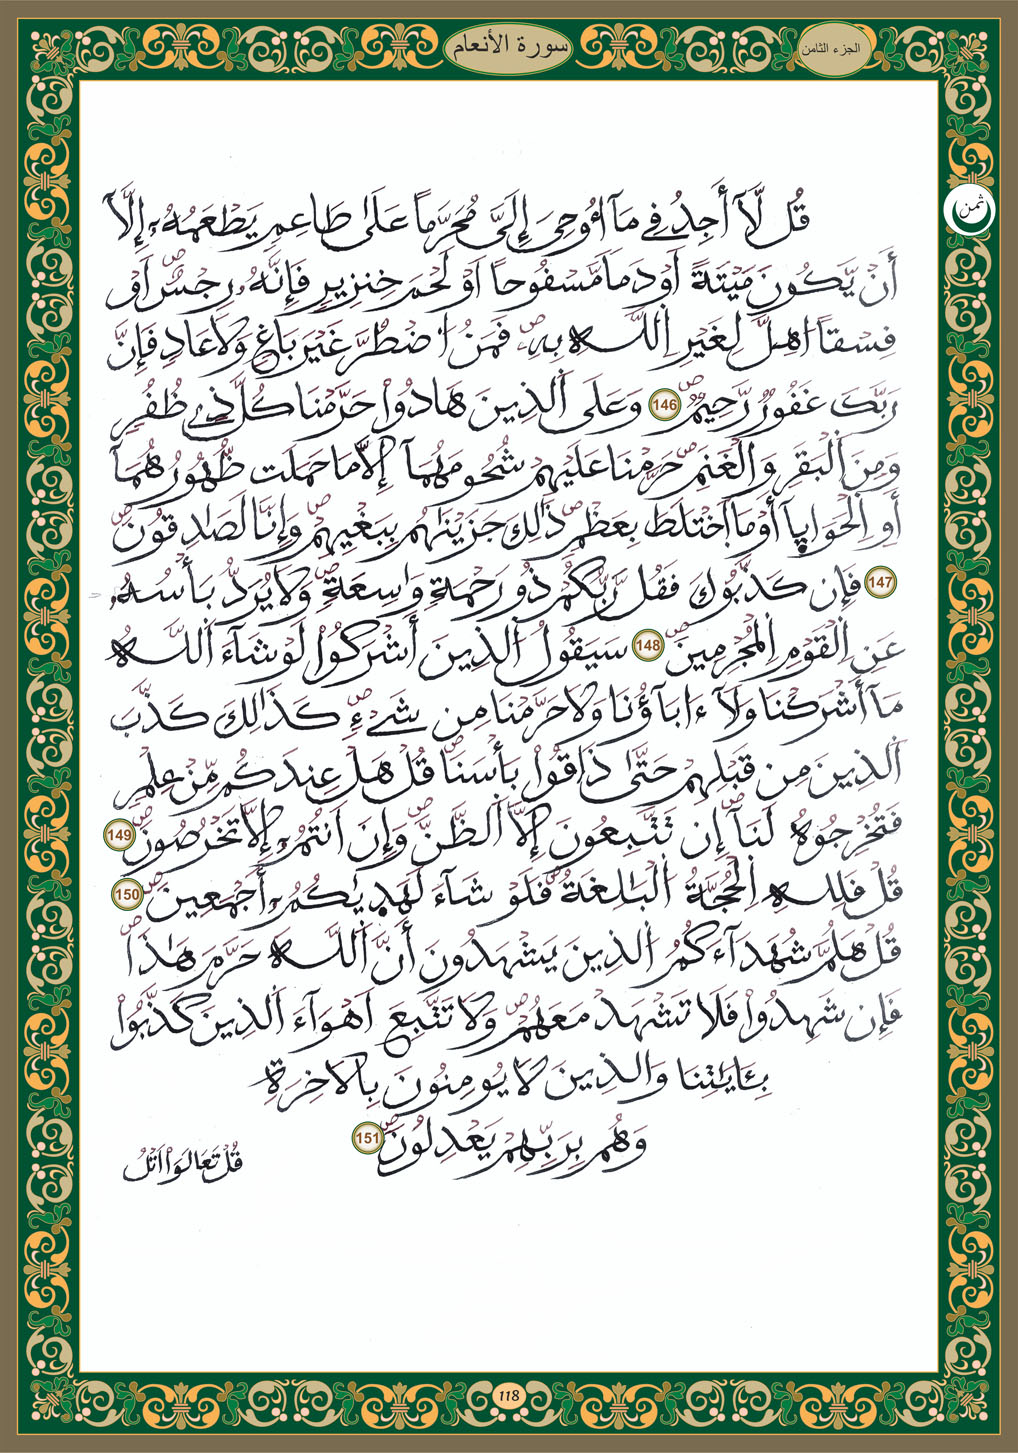 الجزء الثامن
سورة الأنعام
ثمن
قُل لَّآ أَجِدُ فِے مَآ أُوحِيَ إِلَيَّ مُحَرَّماً عَلَىٰ طَاعِمٖ يَطْعَمُهُۥٓ إِلَّآ
أَنْ يَّكُونَ مَيْتَةً اَوْ دَماٗ مَّسْفُوحاً اَوْ لَحْمَ خِنزِيرٖ فَإِنَّهُۥ رِجْسٌ اَوْ
فِسْقاً اهِلَّ لِغَيْرِ اِ۬للَّهِ بِهِۦۖ فَمَنُ اُ۟ضْطُرَّ غَيْرَ بَاغٖ وَلَا عَادٖ فَإِنَّ
رَبَّكَ غَفُورٞ رَّحِيمٞۖ 146 وَعَلَى اَ۬لذِينَ هَادُواْ حَرَّمْنَا كُلَّ ذِے ظُفُرٖ
وَمِنَ اَ۬لْبَقَرِ وَالْغَنَمِۖ حَرَّمْنَا عَلَيْهِمْ شُحُومَهُمَآ إِلَّا مَا حَمَلَت ظُّهُورُهُمَآ
أَوِ اِ۬لْحَوَايَآ أَوْ مَا اَ۪خْتَلَطَ بِعَظْمٖۖ ذَٰلِكَ جَزَيْنَٰهُم بِبَغْيِهِمْۖ وَإِنَّا لَصَٰدِقُونَۖ
147 فَإِن كَذَّبُوكَ فَقُل رَّبُّكُمْ ذُو رَحْمَةٖ وَٰسِعَةٖۖ وَلَا يُرَدُّ بَأْسُهُۥ
عَنِ اِ۬لْقَوْمِ اِ۬لْمُجْرِمِينَۖ 148 سَيَقُولُ اُ۬لذِينَ أَشْرَكُواْ لَوْ شَآءَ اَ۬للَّهُ
مَآ أَشْرَكْنَا وَلَآ ءَابَآؤُنَا وَلَا حَرَّمْنَا مِن شَےْءٖۖ كَذَٰلِكَ كَذَّبَ
اَ۬لذِينَ مِن قَبْلِهِمْ حَتَّىٰ ذَاقُواْ بَأْسَنَاۖ قُلْ هَلْ عِندَكُم مِّنْ عِلْمٖ
فَتُخْرِجُوهُ لَنَآۖ إِن تَتَّبِعُونَ إِلَّا اَ۬لظَّنَّ وَإِنَ اَنتُمُۥٓ إِلَّا تَخْرُصُونَۖ 149
قُلْ فَلِلهِ اِ۬لْحُجَّةُ اُ۬لْبَٰلِغَةُۖ فَلَوْ شَآءَ لَهَدَىٰكُمُۥٓ أَجْمَعِينَۖ 150
قُلْ هَلُمَّ شُهَدَآءَكُمُ اُ۬لذِينَ يَشْهَدُونَ أَنَّ اَ۬للَّهَ حَرَّمَ هَٰذَاۖ
فَإِن شَهِدُواْ فَلَا تَشْهَدْ مَعَهُمْۖ وَلَا تَتَّبِعَ اَهْوَآءَ اَ۬لذِينَ كَذَّبُواْ
بِـَٔايَٰتِنَا وَالذِينَ لَا يُومِنُونَ بِالَاخِرَةِ
وَهُم بِرَبِّهِمْ يَعْدِلُونَۖ 151
قُلْ تَعَالَوَاْ اَتْلُ
118